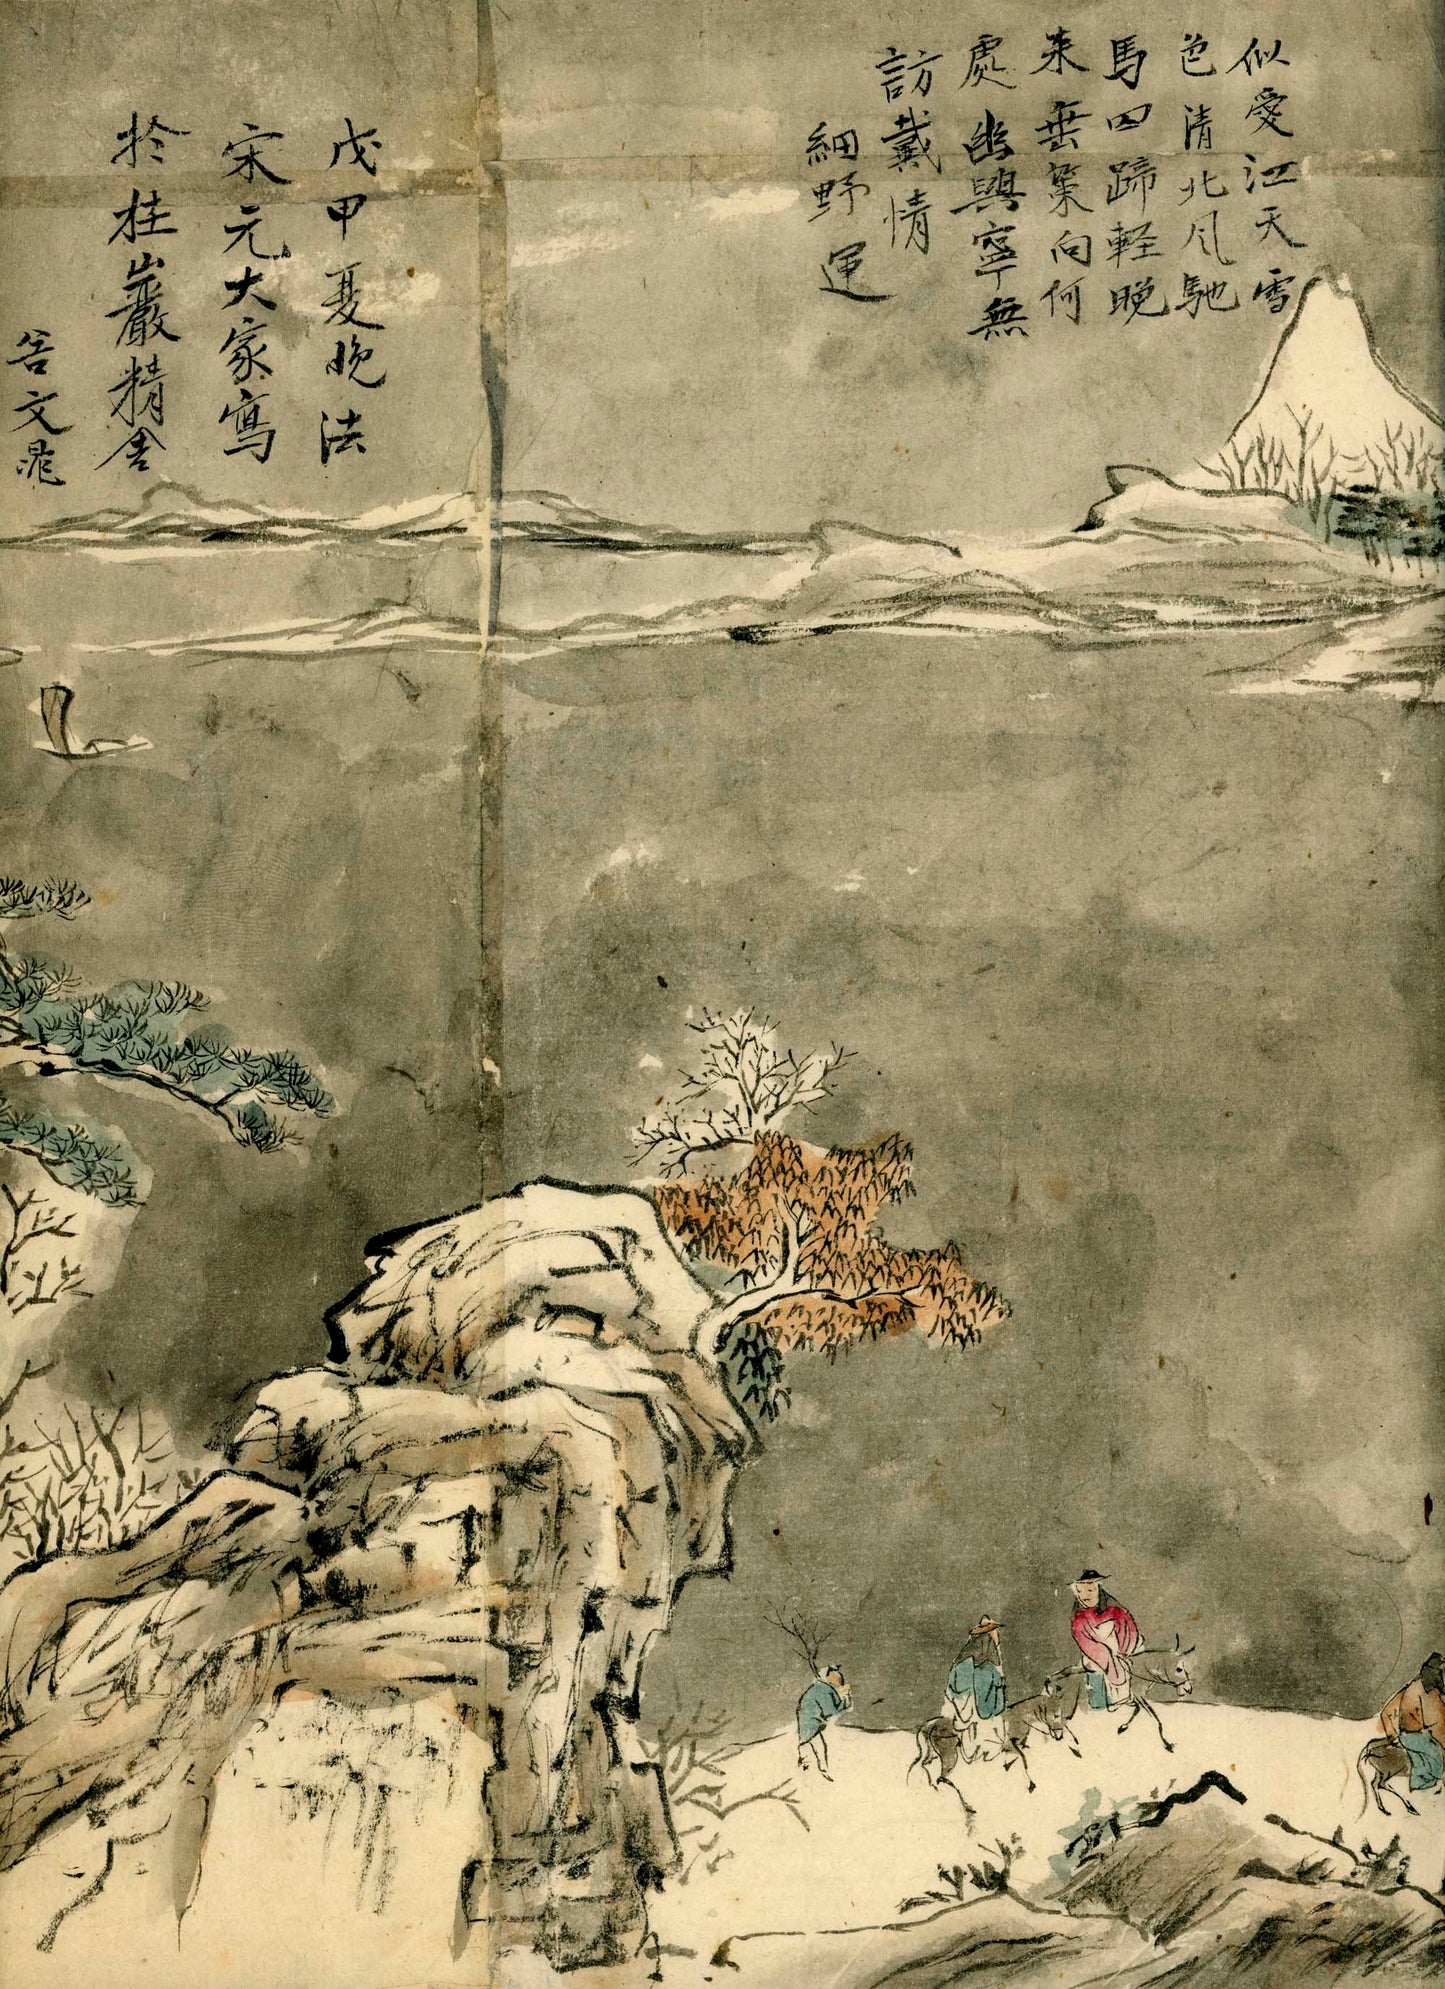 似愛江天雪
色清北风馳
馬四蹄輕晚
来垂策向何
處幽興寧無
訪戴情
細野運
戊甲夏晚法
宋元大家寫
於桂巖精舎
谷文晁